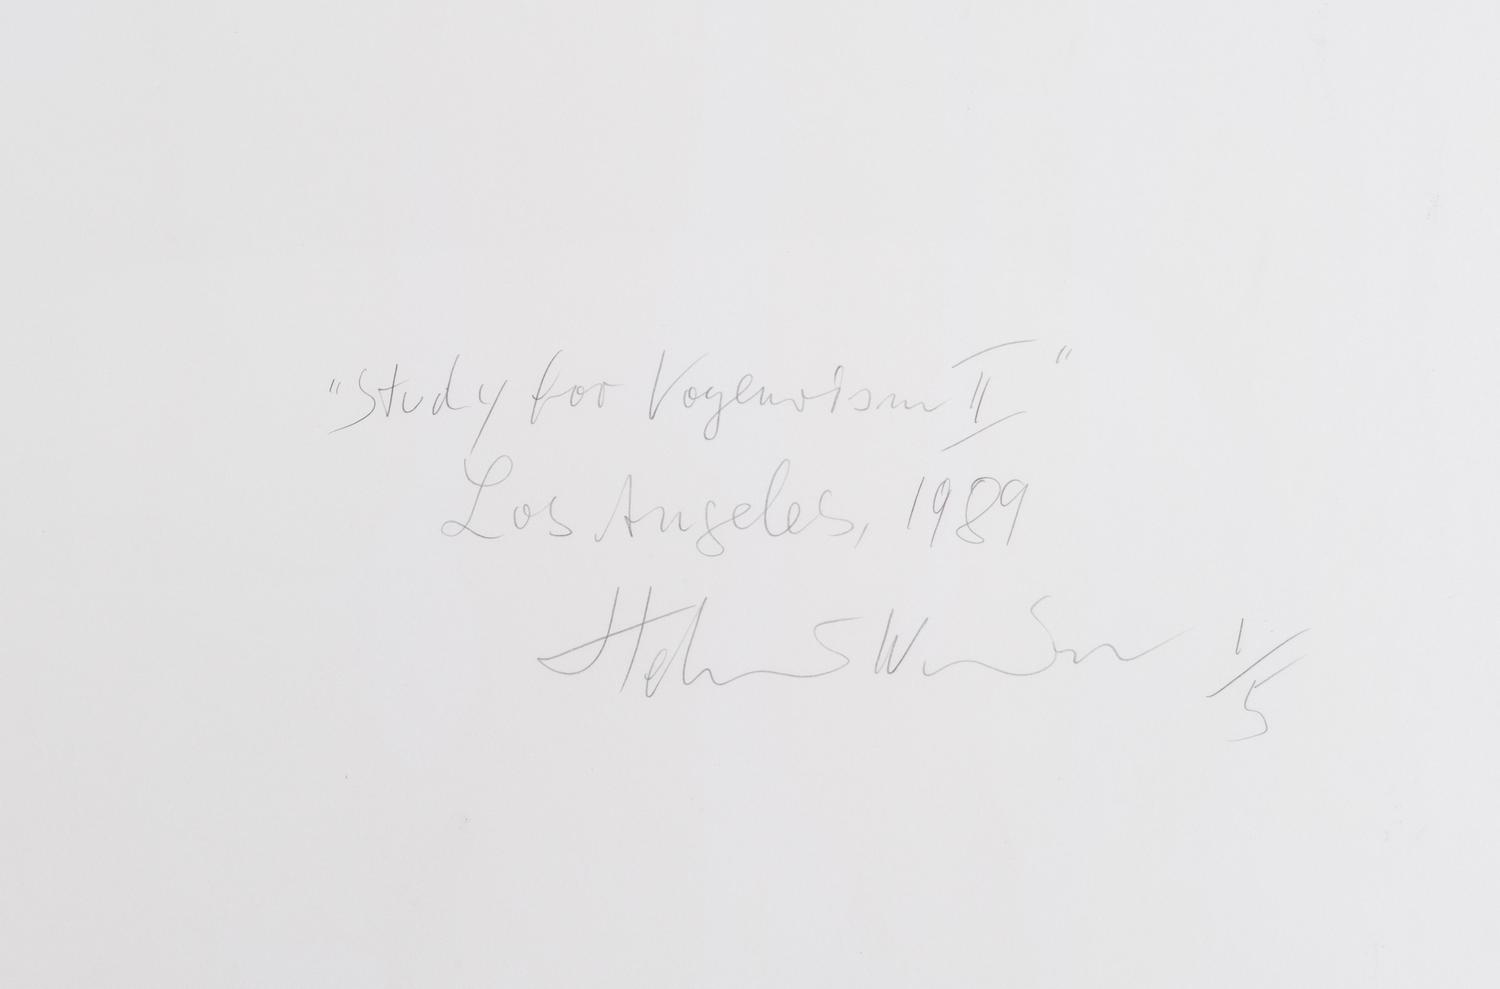 "Study for Voyeurism II"
Los Angeles, 1989
Helmut Newton 1/5